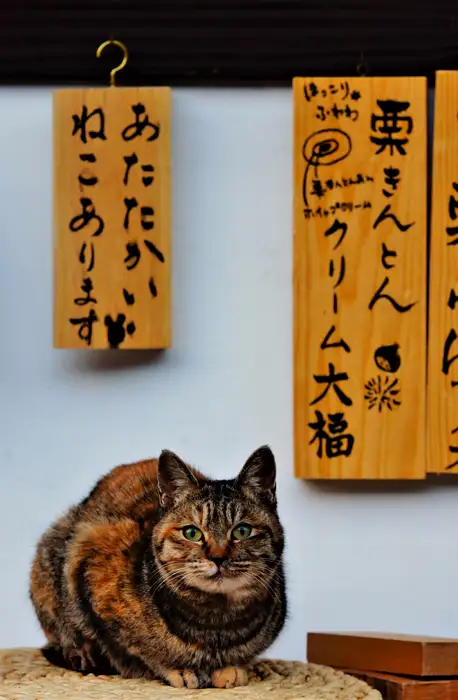 あたたかい
ねこあります
栗きんとん
クリーム大福
ほっこり
ふわわ
栗きんとんあん
ホイップクリーム